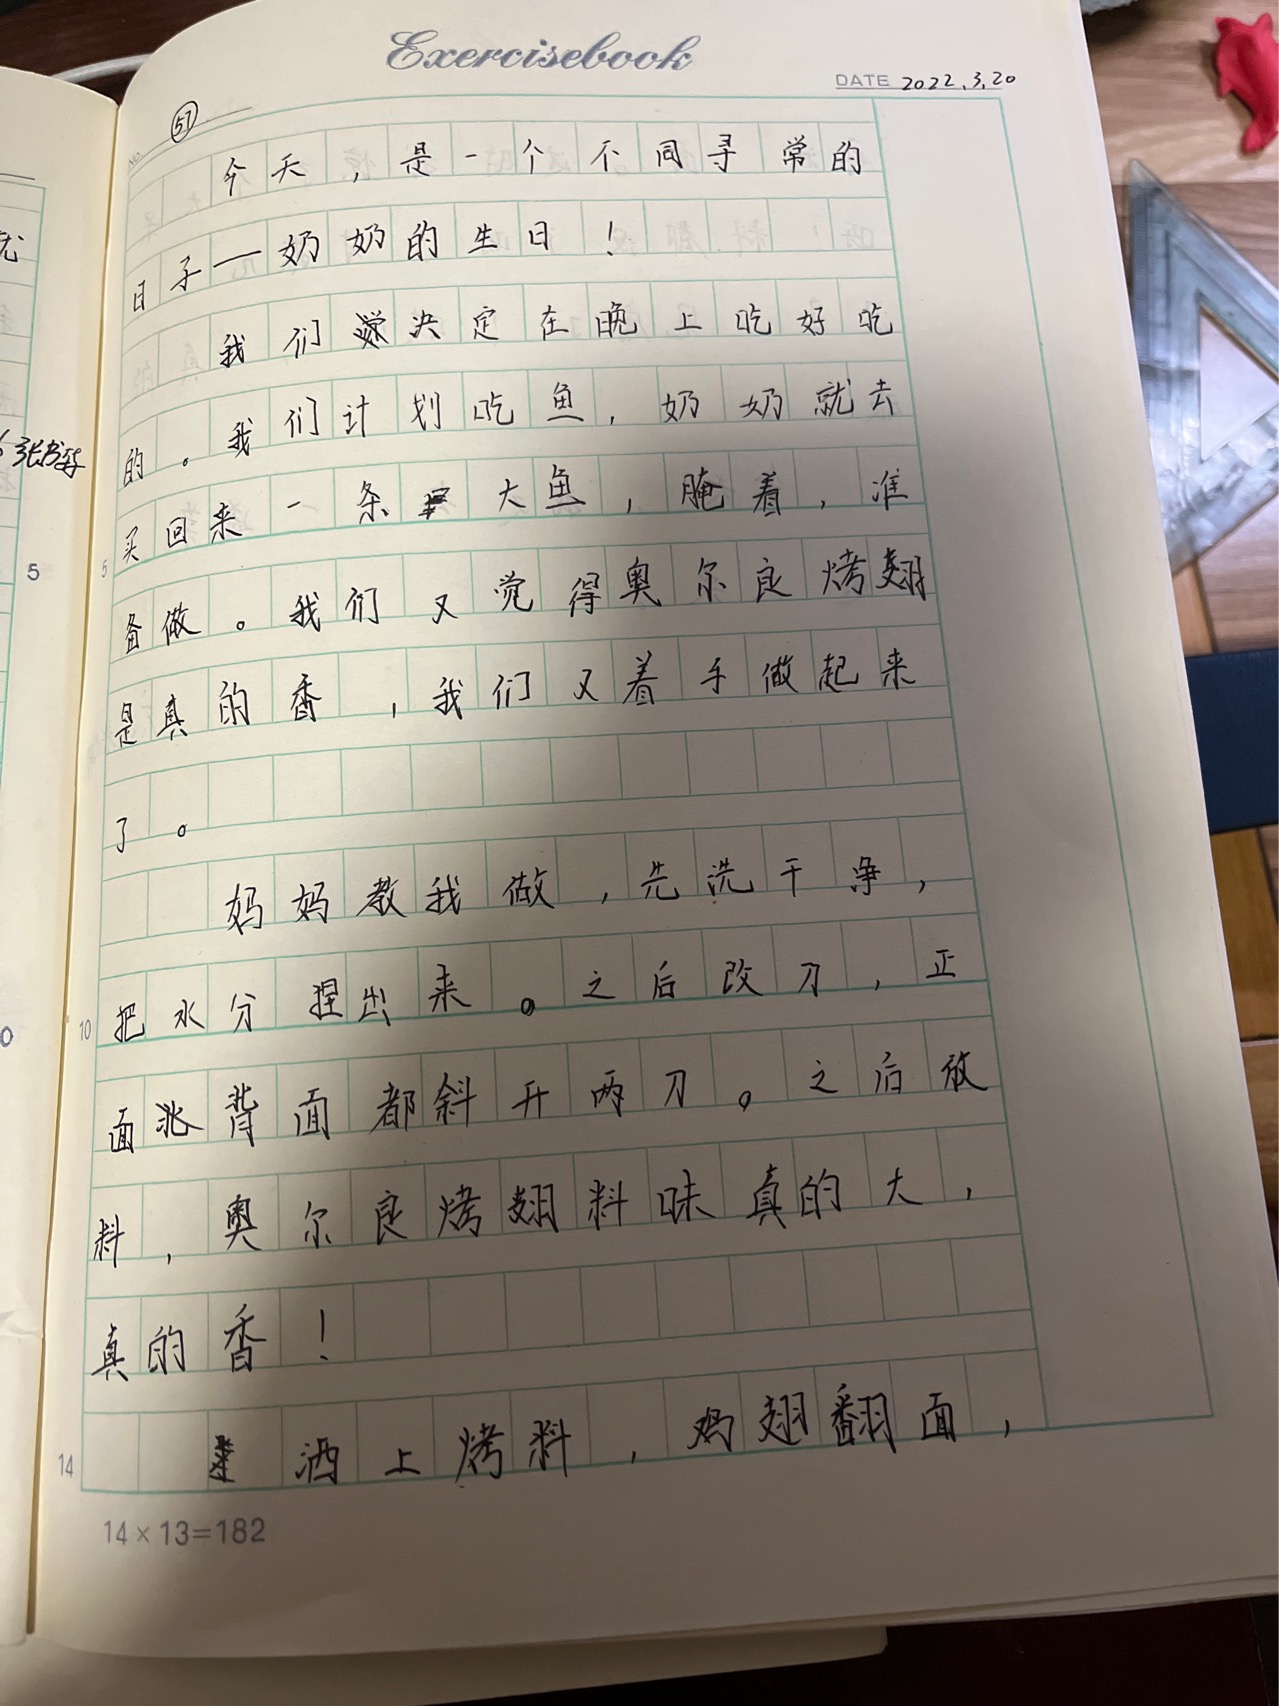 Exercisebook
DATE 2022.3.20
No. 57
今天,是一个不同寻常的
日子——奶奶的生日!
我们决定在晚上吃好吃
的。我们计划吃鱼,奶奶就去
买回来一条大鱼,腌着,准
备做。我们又觉得奥尔良烤翅
是真的香,我们又着手做起来
了。
妈妈教我做,先洗干净,
把水分捏出来。之后改刀,正
面背面都斜开两刀。之后放
料,奥尔良烤翅料味真的大,
真的香!
洒上烤料,鸡翅翻面,
5
10
14
14×13=182
5
0
张书